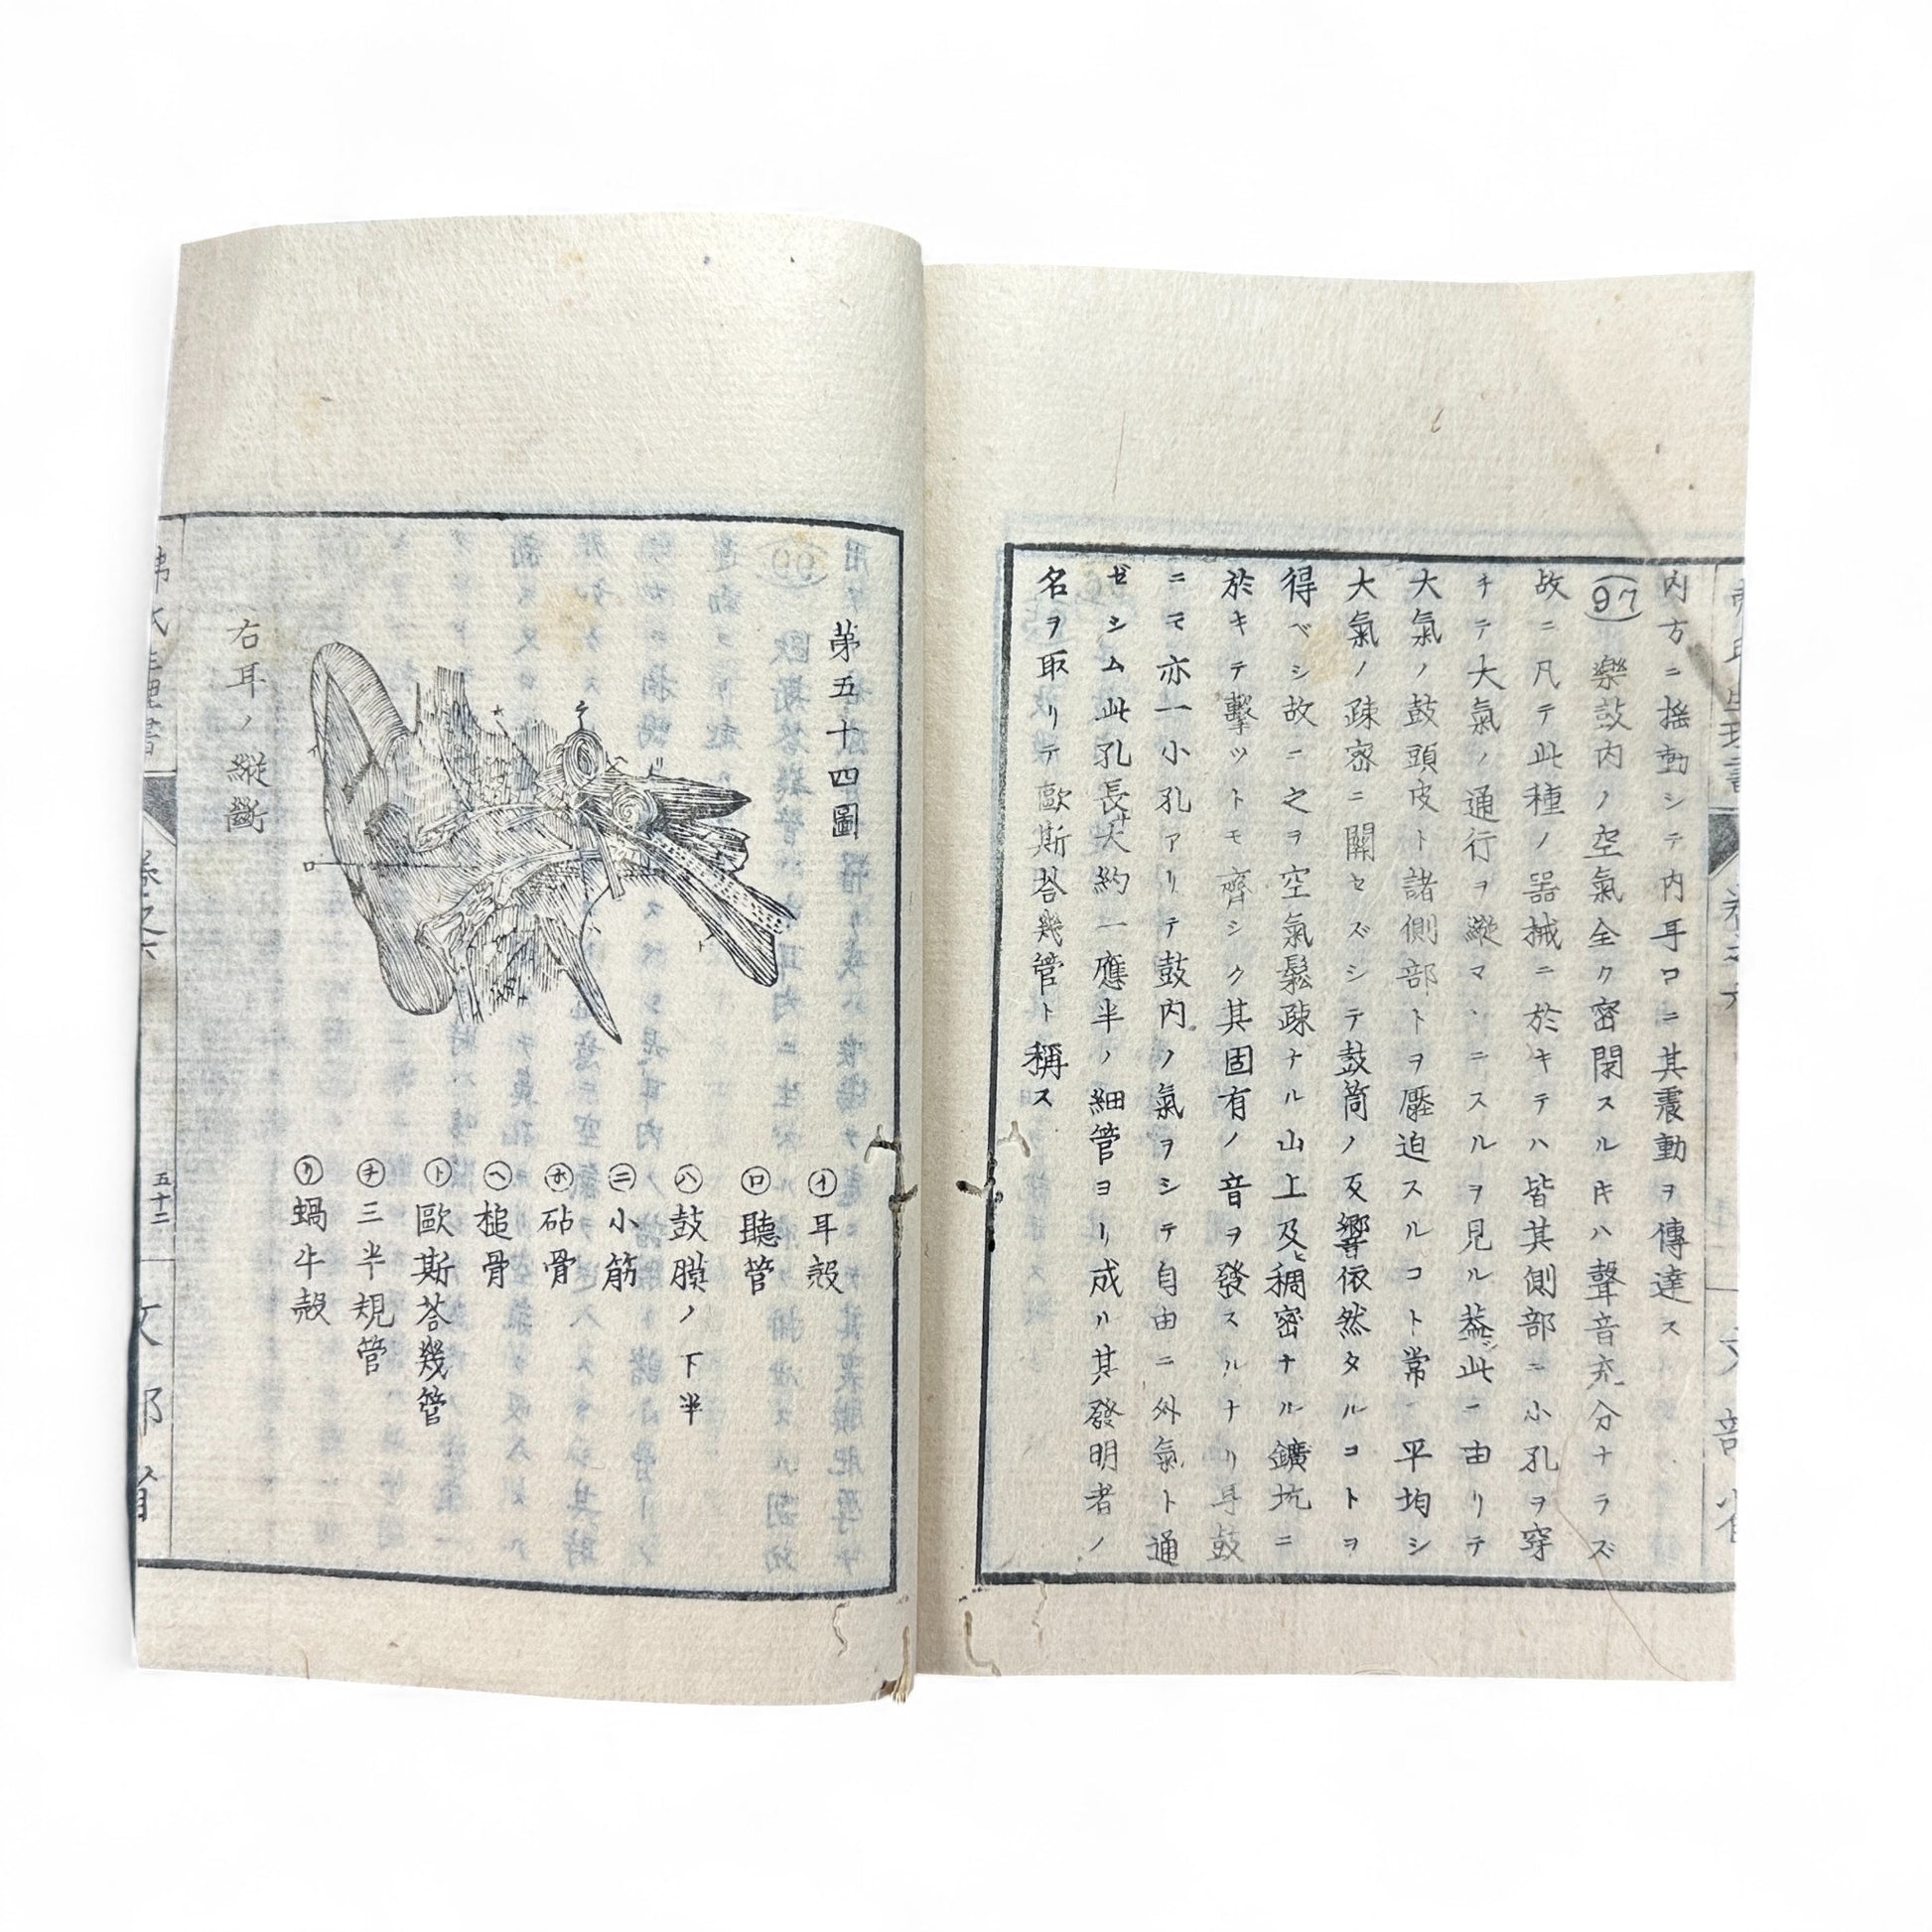 内方ニ搖動シテ内耳口ニ其震動ヲ傳達ス
(97) 樂鼓内ノ空氣全ク密閉スル片ハ聲音充分ナラズ
故ニ凡テ此種ノ器械ニ於キテハ皆其側部ニ小孔ヲ穿
チテ大氣ノ通行ヲ縱マヽニスルヲ見ル蓋此ニ由リテ
大氣ノ鼓頭皮ト諸側部トヲ壓迫スルコト常ニ平均シ
大氣ノ疎密ニ關セズシテ鼓筒ノ反響依然タルコトヲ
得ベシ故ニ之ヲ空氣鬆疎ナル山上及ヒ稠密ナル鑛坑ニ
於キテ擊ツトモ齊シク其固有ノ音ヲ發スルナリ耳鼓
ニモ亦一小孔アリテ鼓内ノ氣ヲシテ自由ニ外氣ト通
ゼシム此孔長サ大約一應半ノ細管ヨリ成ル其發明者ノ
名ヲ取リテ歐斯荅幾管ト稱ス
文部省
第五十四圖
右耳ノ縱斷
㋑耳殼
㋺聽管
㋩鼓膜ノ下半
㋥小筋
㋭砧骨
㋬槌骨
㋣歐斯荅幾管
㋠三半規管
㋷蝸牛殼
卷之六
五十二
文部省